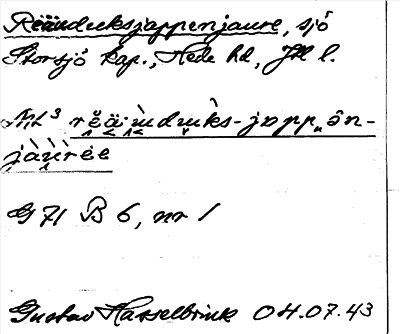 Reäinduksjappenjaure, sjö
Storsjö kap., Hede hd, Jtl l.
NL³ rëäi̮ndu̮ks-japp„ôn-
jàu̮rėe
G 71 B 6, nr 1
Gustav Hasselbrink 04.07.43